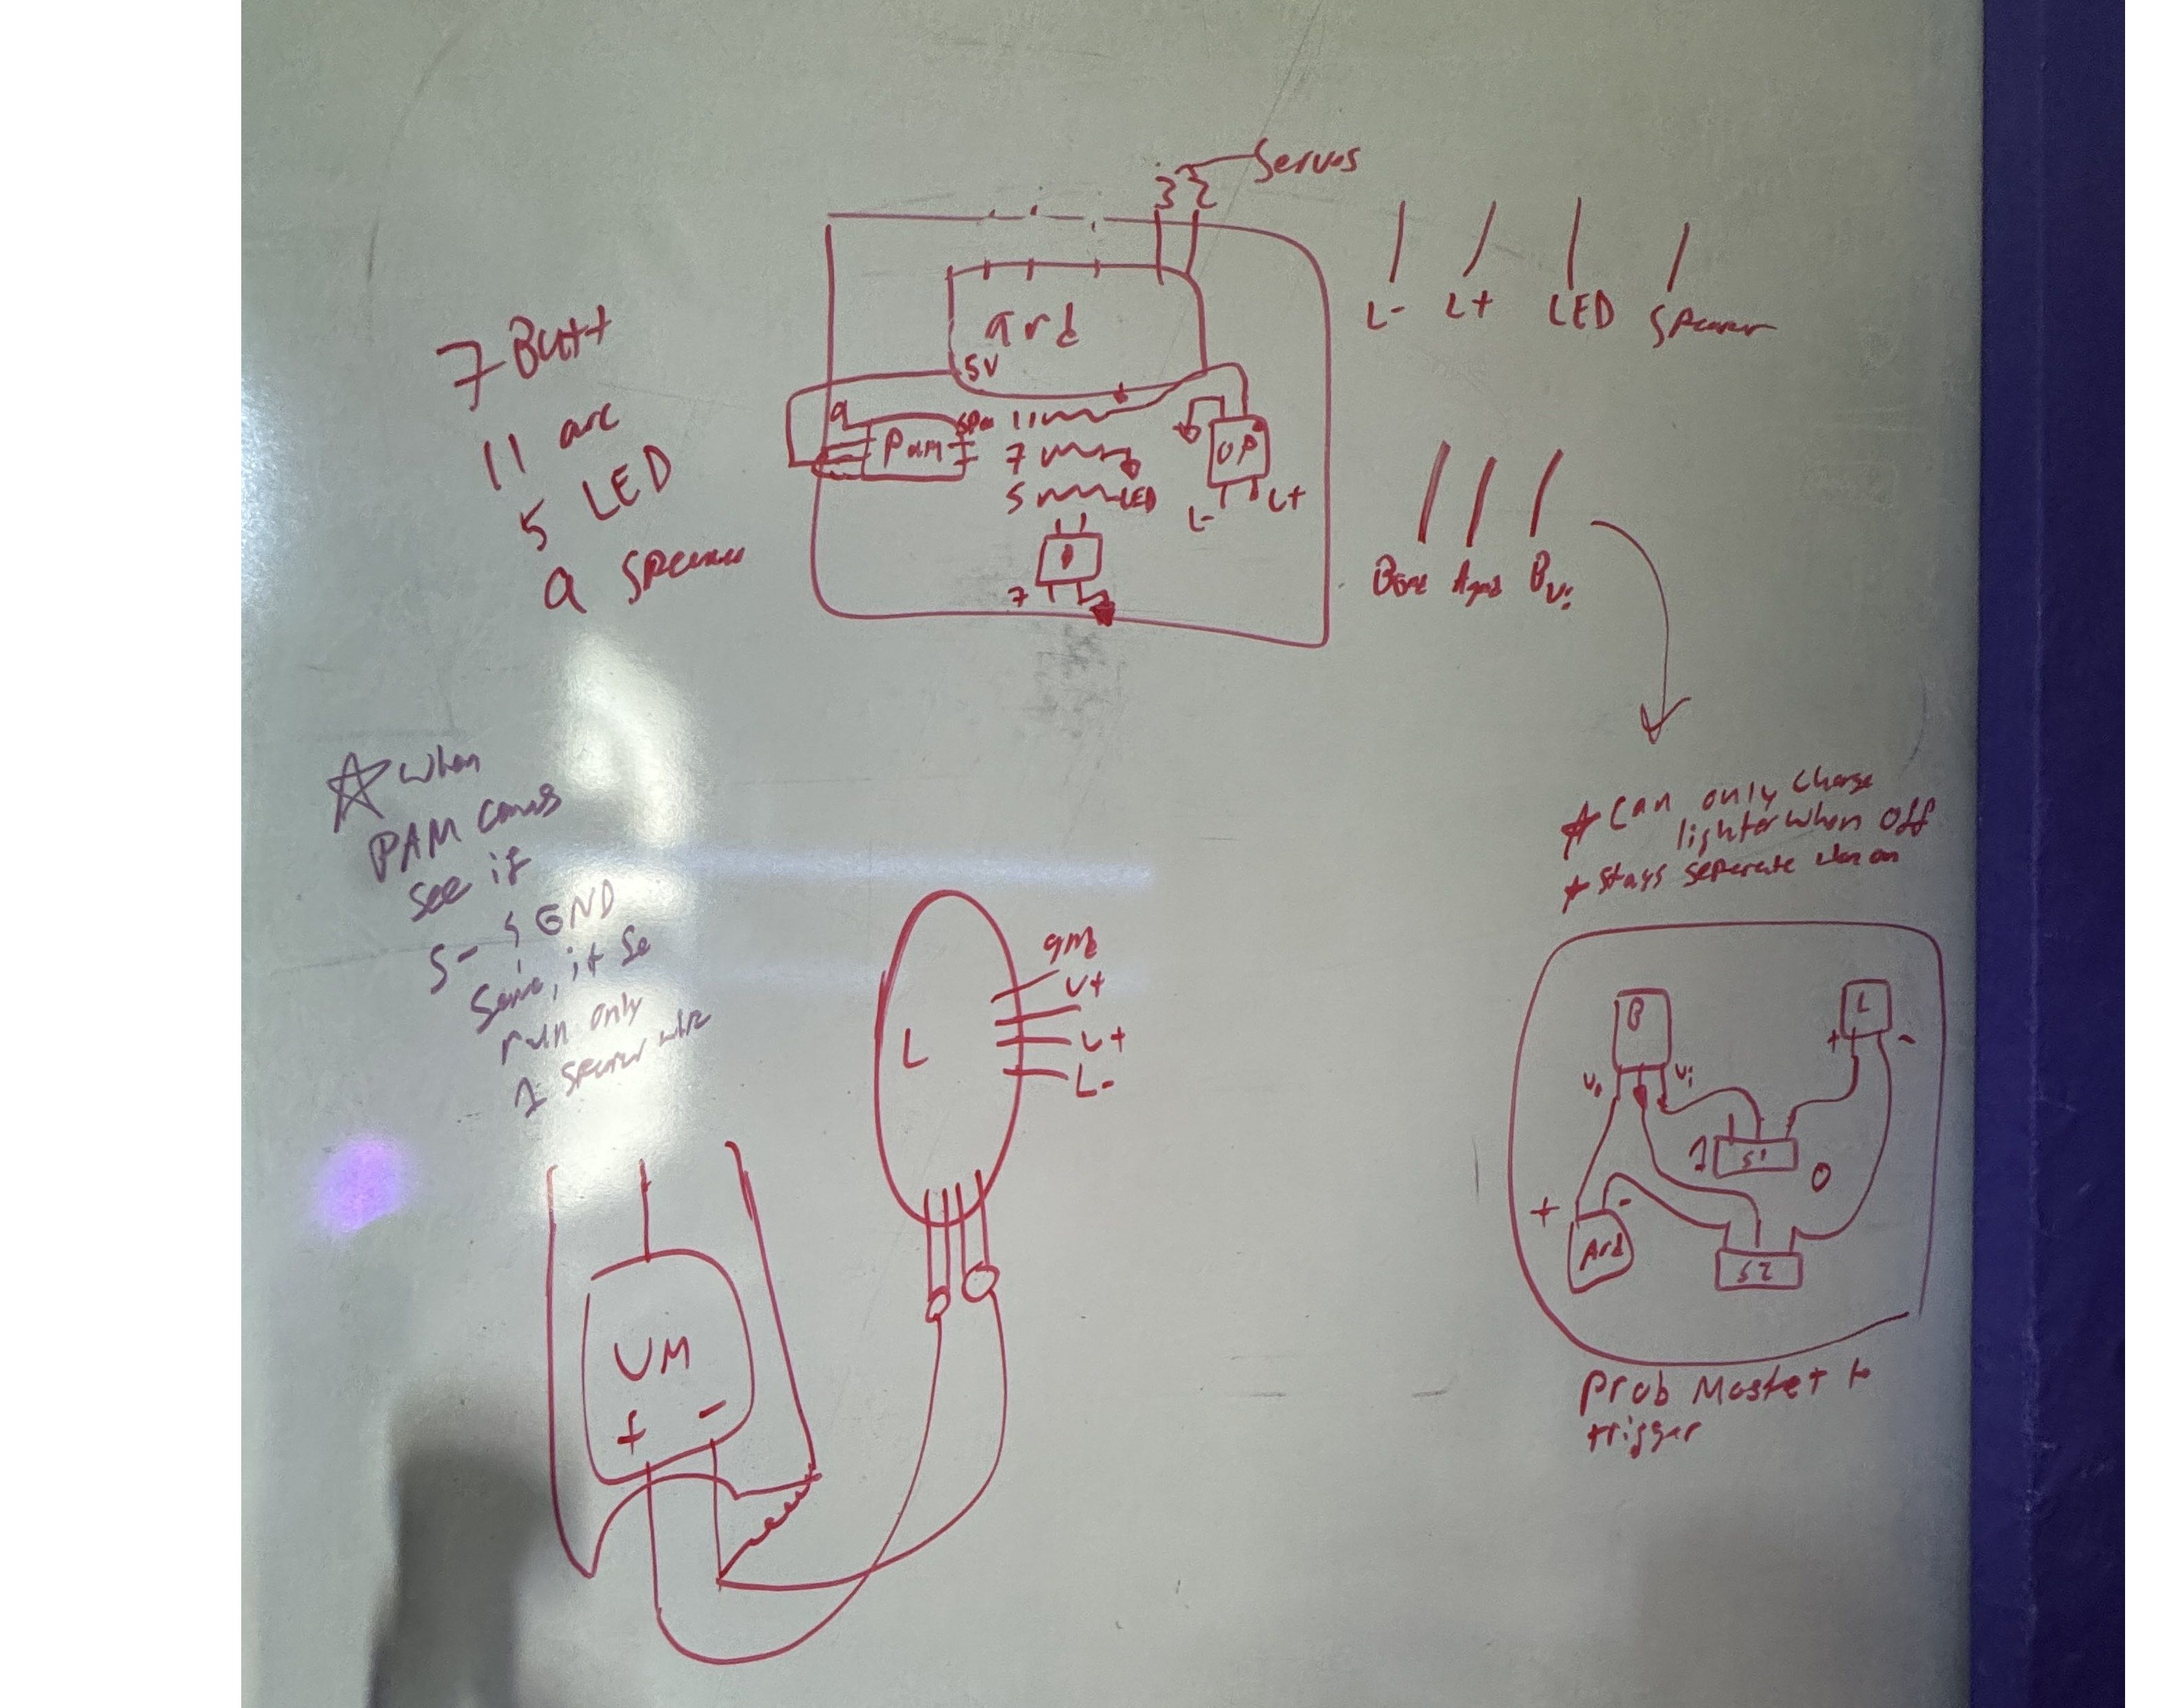 Servos
3 2
ard
5V
9
Pam
Spea
11
7
5 LED
OP
L- L+
7
L- L+ LED Speaker
7 Butt
11 arc
5 LED
9 Speaker
Agnd BVi
When
PAM comes
see if
S- & GND
Same, if so
run only
1 speaker wire
* Can only charge
lighter when off
* Stays seperate when on
L
gnd
V+
L+
L-
VM
+ -
B L
+ -
Vo Vi
1 S1 0
+ -
Ard
S2
Prob Mosfet to
trigger